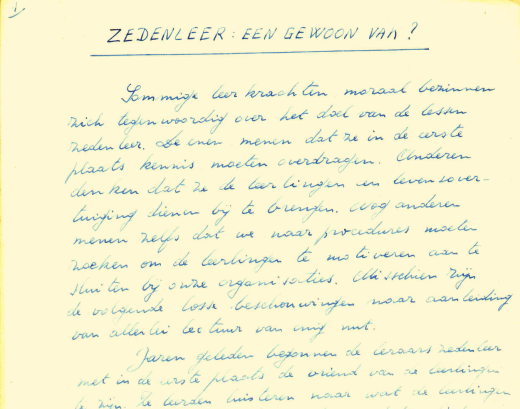 1
ZEDENLEER : EEN GEWOON VAK ?
Sommige leerkrachten moraal bezinnen
zich tegenwoordig over het doel van de lessen
zedenleer. De enen menen dat ze in de eerste
plaats kennis moeten overdragen. Anderen
denken dat ze de leerlingen een levensover-
tuiging dienen bij te brengen. Nog anderen
menen zelfs dat we naar procedures moeten
zoeken om de leerlingen te motiveren aan te
sluiten bij onze organisaties. Misschien zijn
de volgende losse beschouwingen naar aanleiding
van allerlei lectuur van enig nut.
Jaren geleden begonnen de leraars zedenleer
met in de eerste plaats de vriend van de leerlingen
te zijn. Ze leerden luisteren naar wat de leerlingen